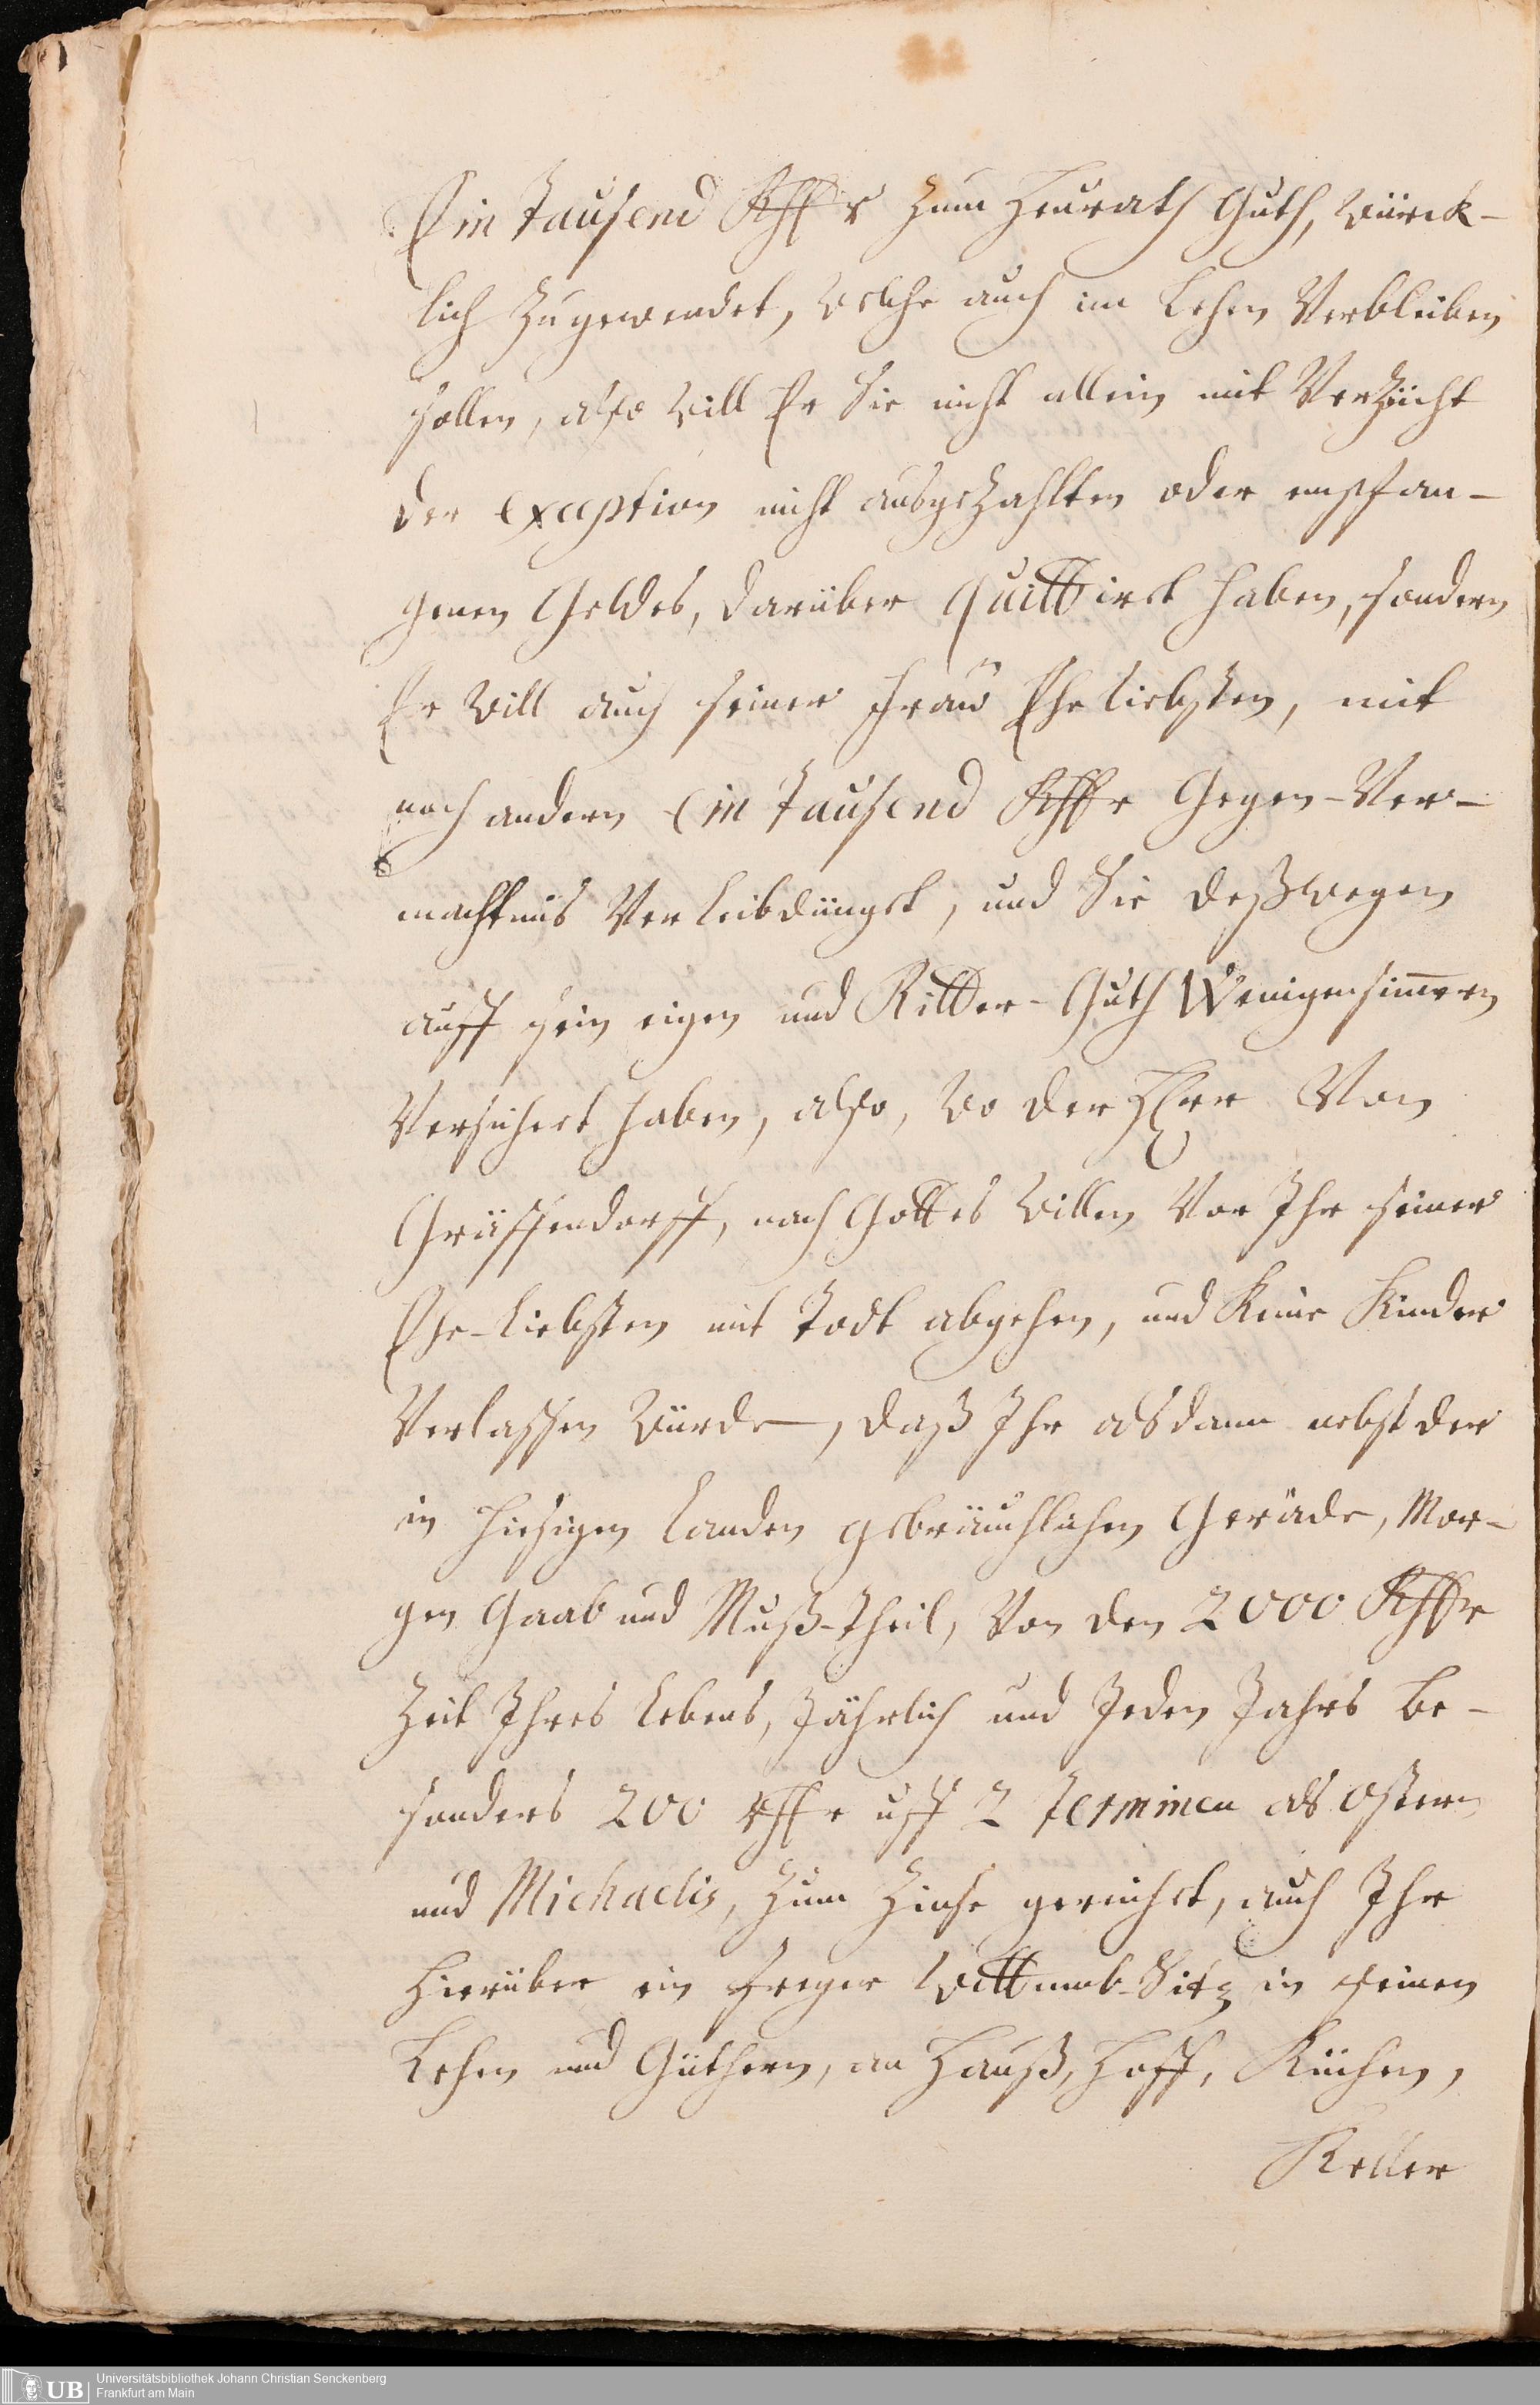 Ein Tausend Rthlr zum Heurath Guth, würck-
lich Zugewendet, welche auch im Lehen Verbleiben
sollen, also will Er Sie nicht allein mit Verzücht
der exception nicht ausgezahlten oder empfan-
genen Geldes, darüber quittiret haben, sondern
Er will auch seiner Frau Eheliebsten, mit
noch andern Ein Tausend Rthlr Gegen-Ver-
mächtnis Verleibdünget, und Sie deßwegen
auff sein eigen und Ritter-Guth Wenigensim̄ern
Versichert haben, also, wo der Herr Von
Gräffendorff, nach Gottes willen Vor Ihr seiner
Ehe-Liebsten mit Todt abgehen, und Keine Kinder
Verlassen würde, daß Ihr alsdann nebst der
in hiesigen Landen gebräuchlichen Geräde, Mor-
gen Gaab und Muß-Theil, Von den 2000 Rthlr
Zeit Ihres Lebens, Jährlich und Jeden Jahrs be-
sonders 200 rthlr uff 2 Terminen als Ostern
und Michaelis, zum Zinse gereichet, auch Ihr
hierüber ein freyer Wittumb-Sitz in seinen
Lehen und Güthern, an Hauß, Hoff, Küchen,
Keller
Universitätsbibliothek Johann Christian Senckenberg
UB Frankfurt am Main